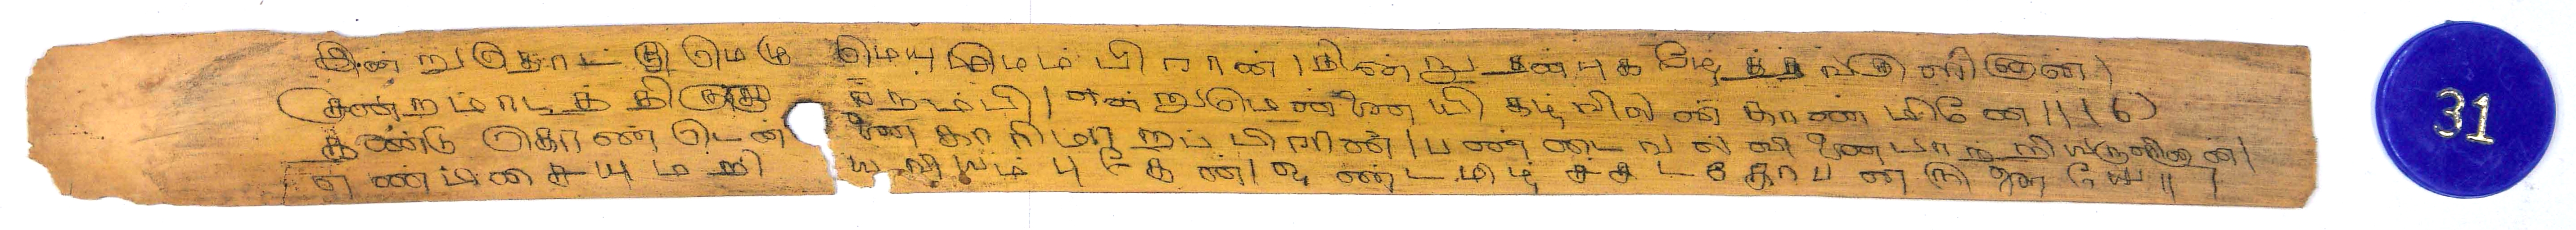 இன்றுதொட்டுமெழு மையுமெம்பிரான்।நின்றுதன்புகழேத்தவருளினான்।
குன்றமாடத்திருக்கு ர்நம்பி।என்றுமென்னையிகழ்விலன்காண்மினே॥(6)
கண்டுகொண்டென் னைகாரிமாறப்பிரான்।பண்டைவல்வினைபாற்றியருளினான்।
எண்டிசையுமறி யவியம்புகேன்।ஒண்டமிழ்ச்சடகோபனருளையே॥ 7
31